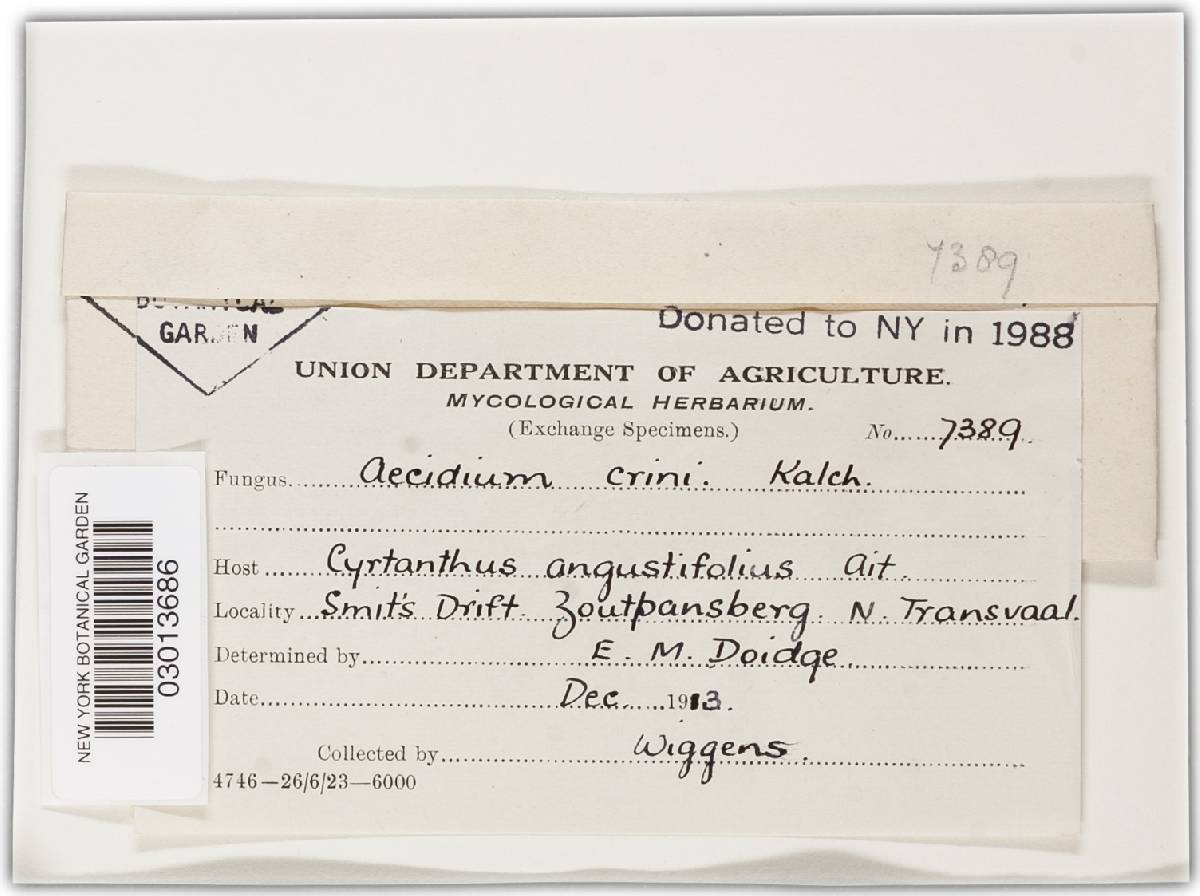 7389
BOTANICAL
GARDEN
Donated to NY in 1988
UNION DEPARTMENT OF AGRICULTURE.
MYCOLOGICAL HERBARIUM.
(Exchange Specimens.)
No. 7389
Fungus. Aecidium crini. Kalch.
Host Cyrtanthus angustifolius Ait.
Locality Smit's Drift. Zoutpansberg. N. Transvaal.
Determined by E. M. Doidge
Date Dec 1913.
Collected by Wiggens.
4746—26/6/23—6000
NEW YORK BOTANICAL GARDEN
03013686